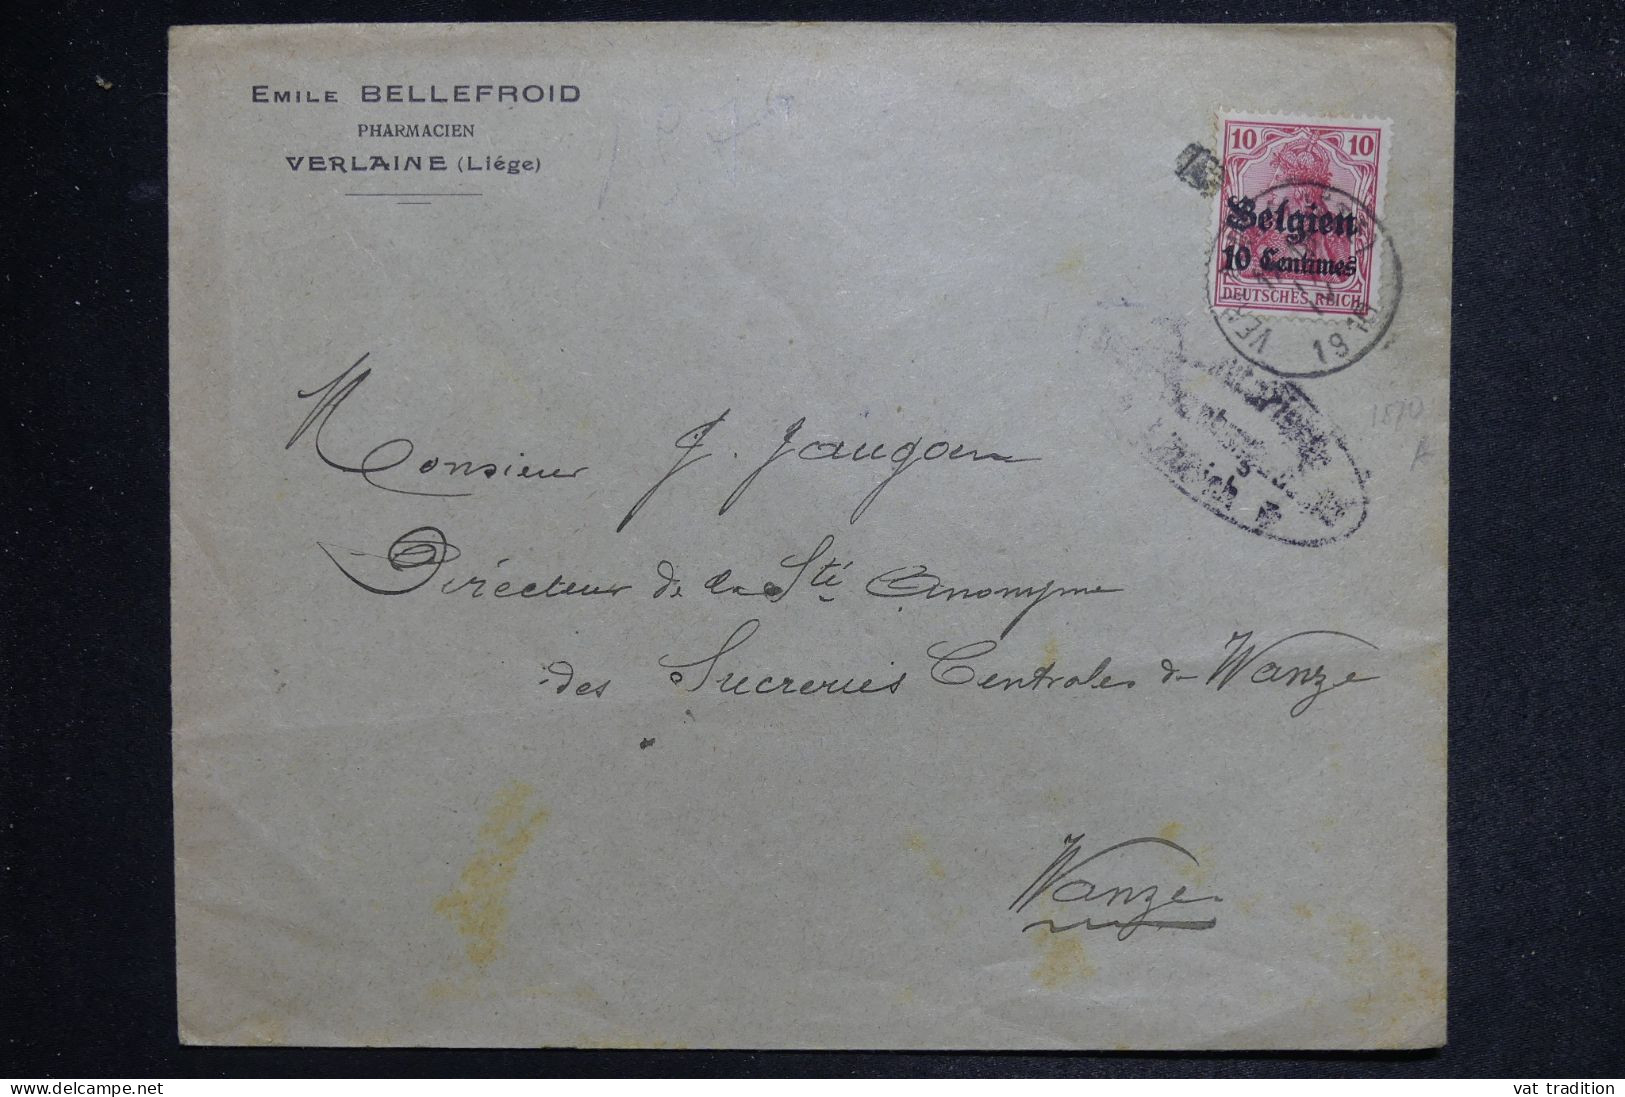 EMILE BELLEFROID
PHARMACIEN
VERLAINE (Liége)
10 10
Belgien
10 Centimes
DEUTSCHES REICH
Monsieur J. Jaugoin
Directeur de la Sté Anonyme
des Sucreries Centrales de Wanze
Wanze
vat tradition